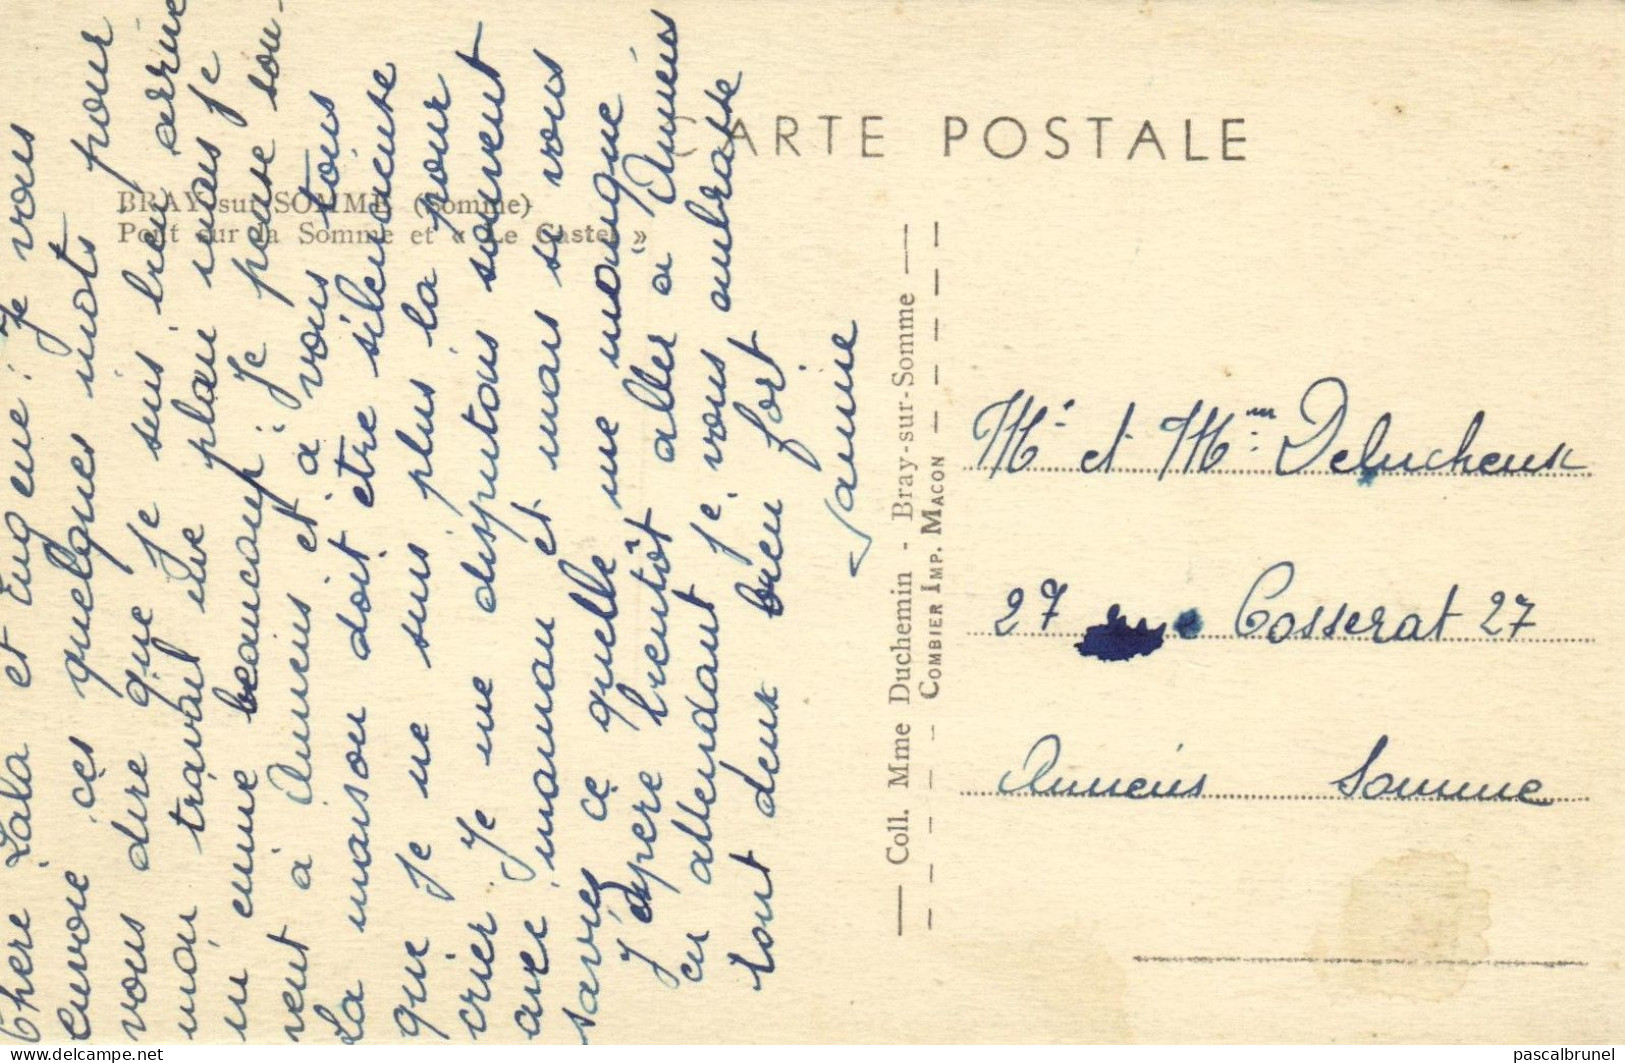 CARTE POSTALE
BRAY-sur-SOMME (Somme)
Pont sur la Somme et « Le Castel »
Chère Lala et Eugene : Je vous
envoie ces quelques mots pour
vous dire que Je suis bien arrivé
mon travail me plau mais Je
m ennuie beaucoup : Je pense sou-
vent à Amiens et à vous tous
La maison doit être silencieuse
que Je ne suis plus la pour
crier Je me disputais souvent
avec maman et mais si vous
saviez ce quelle me manque
J'espere bientôt aller à Amiens
en attendant Je vous embrasse
tout deux bien fort
Janine
Coll. Mme Duchemin - Bray-sur-Somme
COMBIER IMP. MACON
Mr et Mme Delucheux
27 Cosserat 27
Amiens Somme
delcampe.net
pascalbrunel